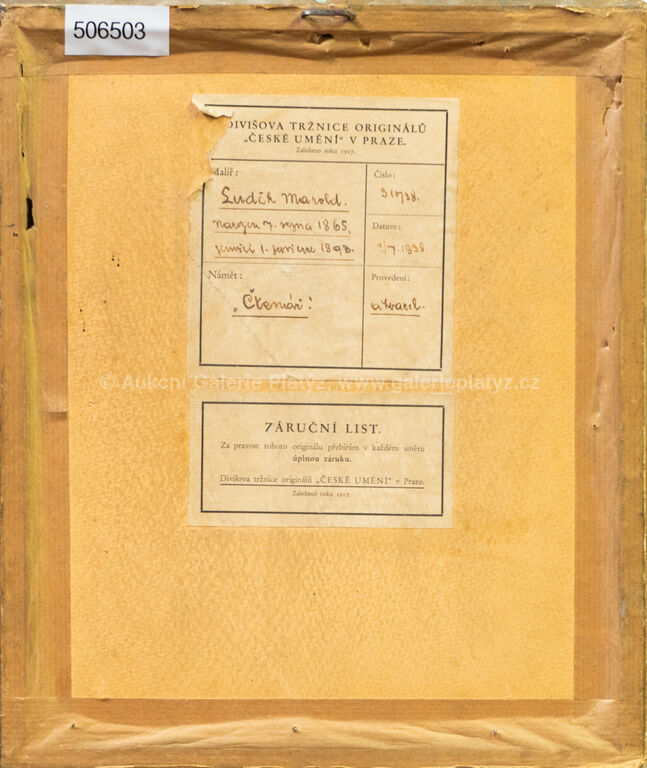 506503
DIVIŠOVA TRŽNICE ORIGINÁLŮ
„ČESKÉ UMĚNÍ“ V PRAZE.
Založeno roku 1917.
Malíř:
Luděk Marold.
narozen 7. srpna 1865,
zemřel 1. prosince 1898.
Číslo:
Datum:
1/7. 1938
Námět:
„Čtenář“.
Provedení:
akvarel.
© Aukční Galerie Platýz, www.galerieplatyz.cz
ZÁRUČNÍ LIST.
Za pravost tohoto originálu přebírám v každém směru
úplnou záruku.
Divišova tržnice originálů „ČESKÉ UMĚNÍ“ v Praze.
Založeno roku 1917.